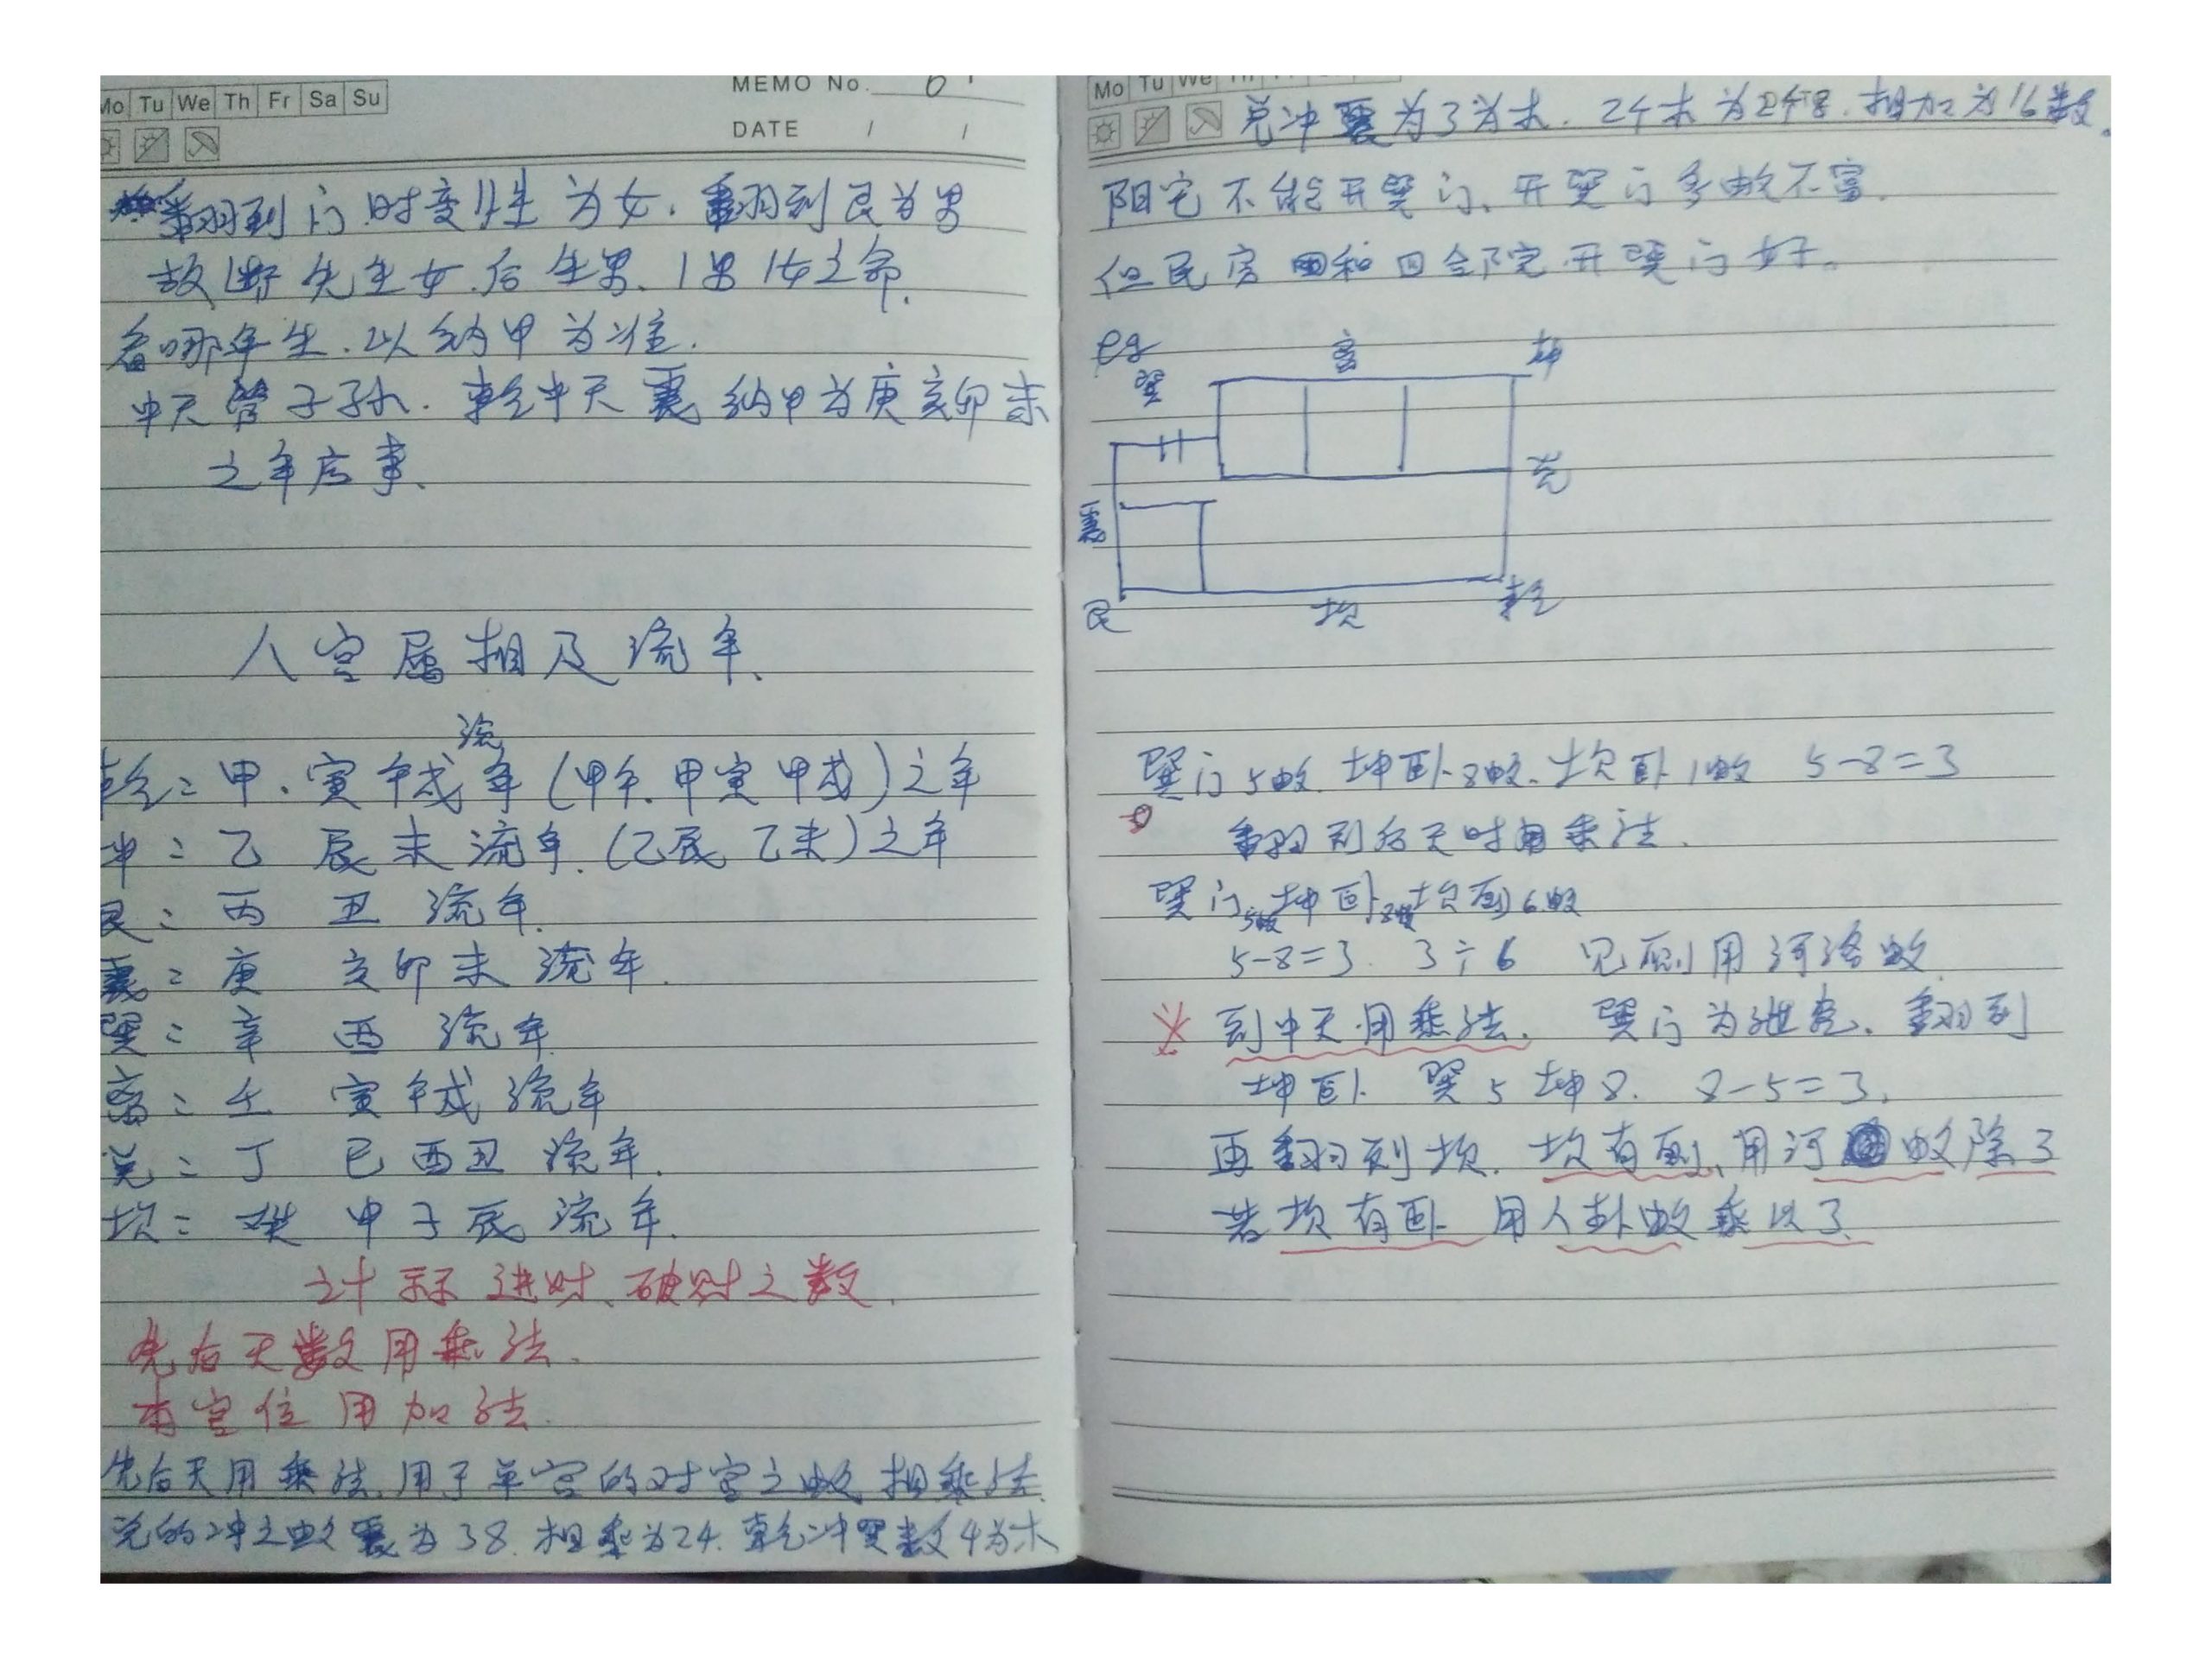 Mo Tu We Th Fr Sa Su
MEMO No. 6
DATE / /
翻到门时变性为女.翻到艮为男
故断先生女.后生男、1男1女之命.
看哪年生.以纳甲为准.
中天管子孙.乾中天震纳甲为庚亥卯未
之年应事、
八宫属相及流年、
乾:甲.寅午戌流年(甲午.甲寅甲戌)之年
坤:乙 辰未流年.(乙辰乙未)之年
艮:丙 丑 流年.
震:庚 亥卯未 流年.
巽:辛 酉 流年
离:壬 寅午戌 流年
兑:丁 巳酉丑 流年.
坎:癸 申子辰 流年.
计算 进财、破财之数.
先后天数用乘法.
本宫位用加法.
先后天用乘法.用于单宫的对宫之数相乘法
兑的冲之数震为38.相乘为24.乾冲巽数4为木
Mo Tu We Th
兑冲震为3为木.24木为248.相加为16数.
阳宅不能开巽门、开巽门多数不富.
但民房和四合院开巽门好。
eg
巽 离 坤
兑
震
艮 坎 乾
巽门5数.坤卧8数.坎卧1数 5-8=3
翻到后天时用乘法.
巽门5数坤卧8数坎厕6数
5-8=3. 3÷6 见厕用河洛数
到中天用乘法. 巽门为进宅.翻到
坤卧 巽5坤8. 8-5=3.
再翻到坎.坎有厕、用河数除3
若坎有卧 用八卦数乘以3.